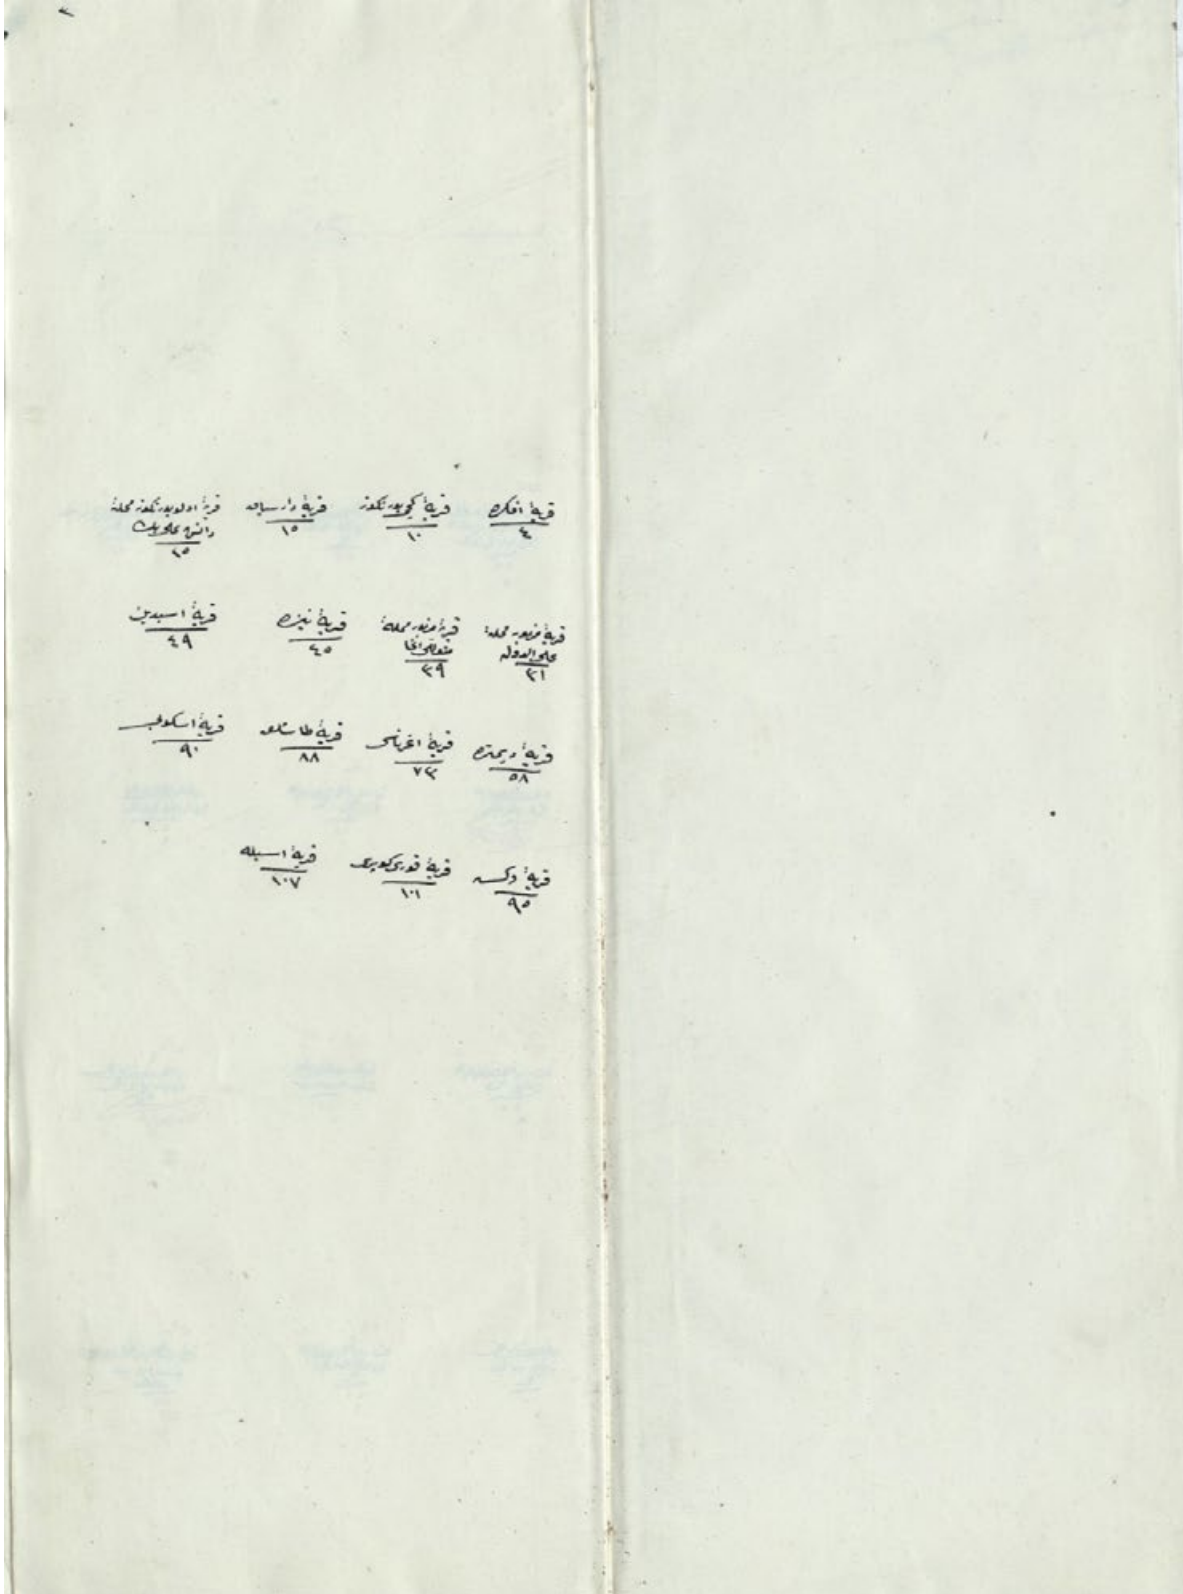 قریهٔ افکره
٤
قریهٔ کچی بورنکوز
١٠
قریهٔ دارسیاق
١٥
قریهٔ اولو بورنکوز محله
علی بك
٢٥
قریهٔ مزبور محلهٔ
علی الدوله
٣١
قریهٔ مزبور محلهٔ
اغا
٣٩
قریهٔ نیزه
٤٥
قریهٔ اسبدین
٤٩
قریهٔ ویمتره
٥٨
قریهٔ اغرناس
٧٣
قریهٔ طاشلق
٨٨
قریهٔ اسکوبی
٩٠
قریهٔ وکسه
٩٥
قریهٔ قوری کوپری
١٠١
قریهٔ اسبله
١٠٧